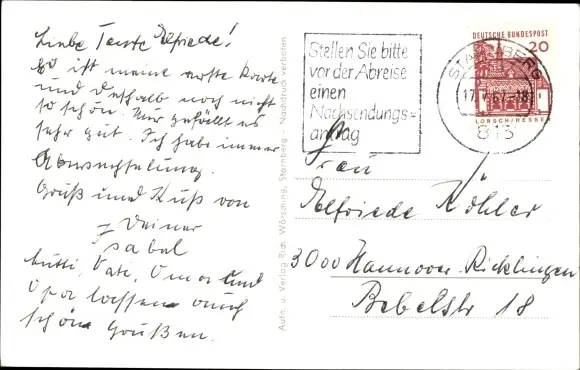 Liebe Tante Elfriede!
Es ist meine erste Karte
und deshalb noch nicht
so schön. Mir gefällt es
sehr gut. Ich habe immer
Abwechselung.
Gruß und Kuß von
Deiner
Isabel
Mutti, Vati, Oma und
Opa lassen auch
schön Grüßen.
Aufn. u. Verlag Rich. Wörsching, Starnberg - Nachdruck verboten
Stellen Sie bitte
vor der Abreise
einen
Nachsendungs-
antrag
DEUTSCHE BUNDESPOST
20
LORSCH/HESSEN
STARNBERG
17.V.67-18
813
Frau
Elfriede Köhler
3000 Hannover-Ricklingen
Bebelstr 18